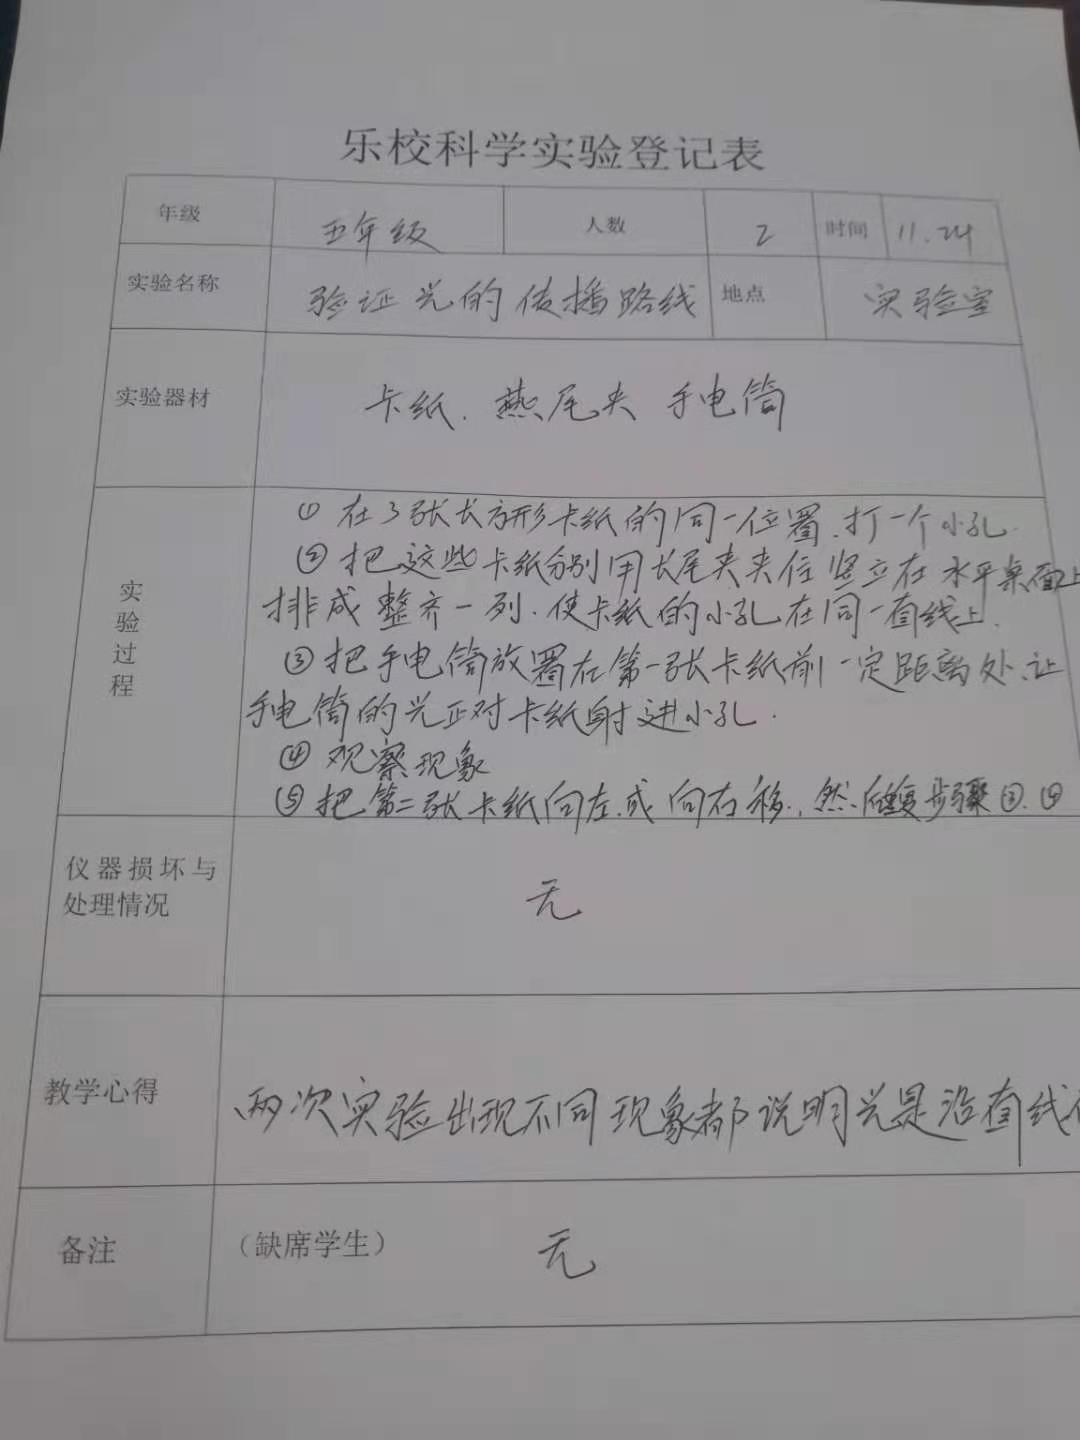 乐校科学实验登记表
年级 五年级 人数 2 时间 11.24
实验名称 验证光的传播路线 地点 实验室
实验器材 卡纸. 燕尾夹 手电筒
实验过程
① 在3张长方形卡纸的同一位置.打一个小孔.
② 把这些卡纸分别用长尾夹夹住竖立在水平桌面上
排成整齐一列.使卡纸的小孔在同一直线上.
③ 把手电筒放置在第一张卡纸前一定距离处.让
手电筒的光正对卡纸射进小孔.
④ 观察现象
⑤ 把第二张卡纸向左.或向右移.,然后重复步骤③.④
仪器损坏与
处理情况 无
教学心得 两次实验出现不同现象都说明光是沿直线
备注 (缺席学生) 无